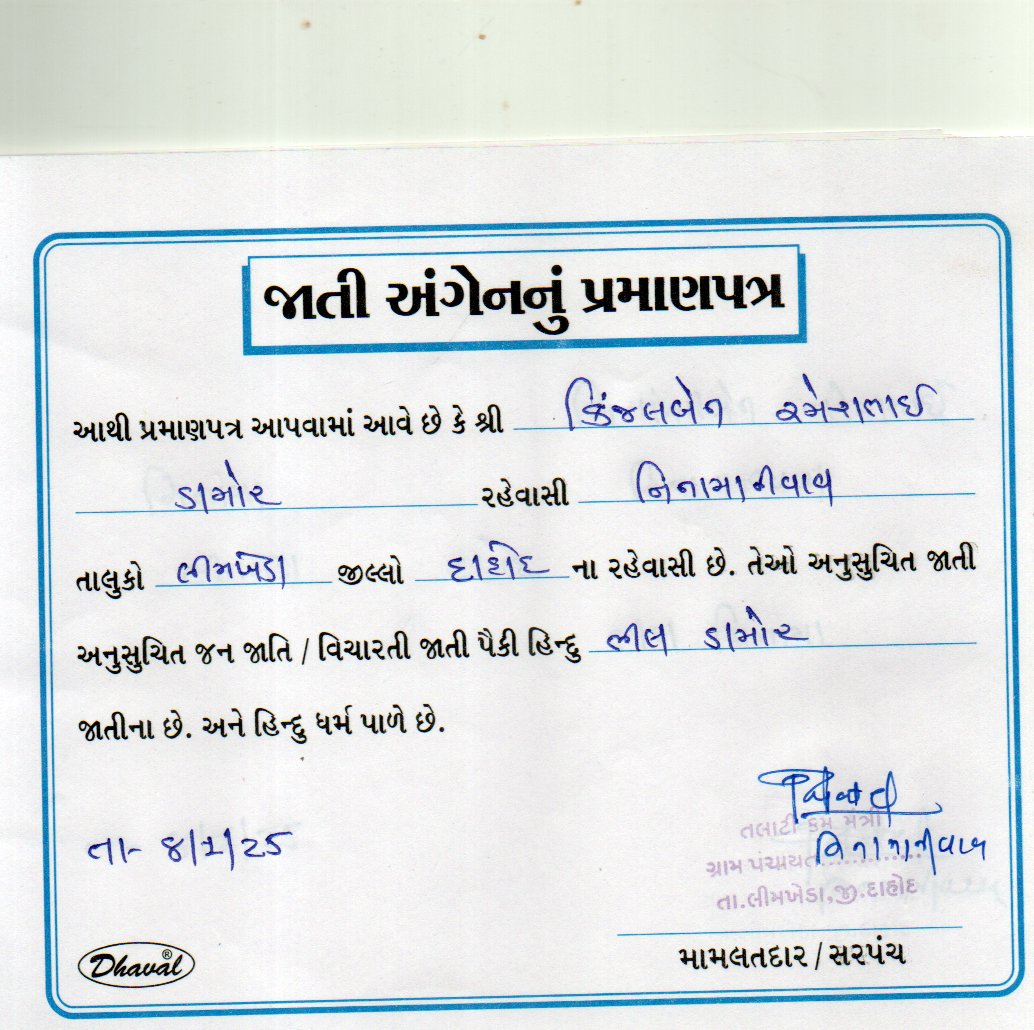 જાતી અંગેનનું પ્રમાણપત્ર
આથી પ્રમાણપત્ર આપવામાં આવે છે કે શ્રી કિંજલબેન રમેશભાઈ
ડામોર રહેવાસી નિનામાનીવાવ
તાલુકો લીમખેડા જીલ્લો દાહોદ ના રહેવાસી છે. તેઓ અનુસુચિત જાતી
અનુસુચિત જન જાતિ / વિચારતી જાતી પૈકી હિન્દુ ભીલ ડામોર
જાતીના છે. અને હિન્દુ ધર્મ પાળે છે.
તલાટી કમ મંત્રી
તા- ૪/૧/25
ગ્રામ પંચાયત નિનામાનીવાવ
તા.લીમખેડા,જી.દાહોદ
મામલતદાર / સરપંચ
Dhaval®